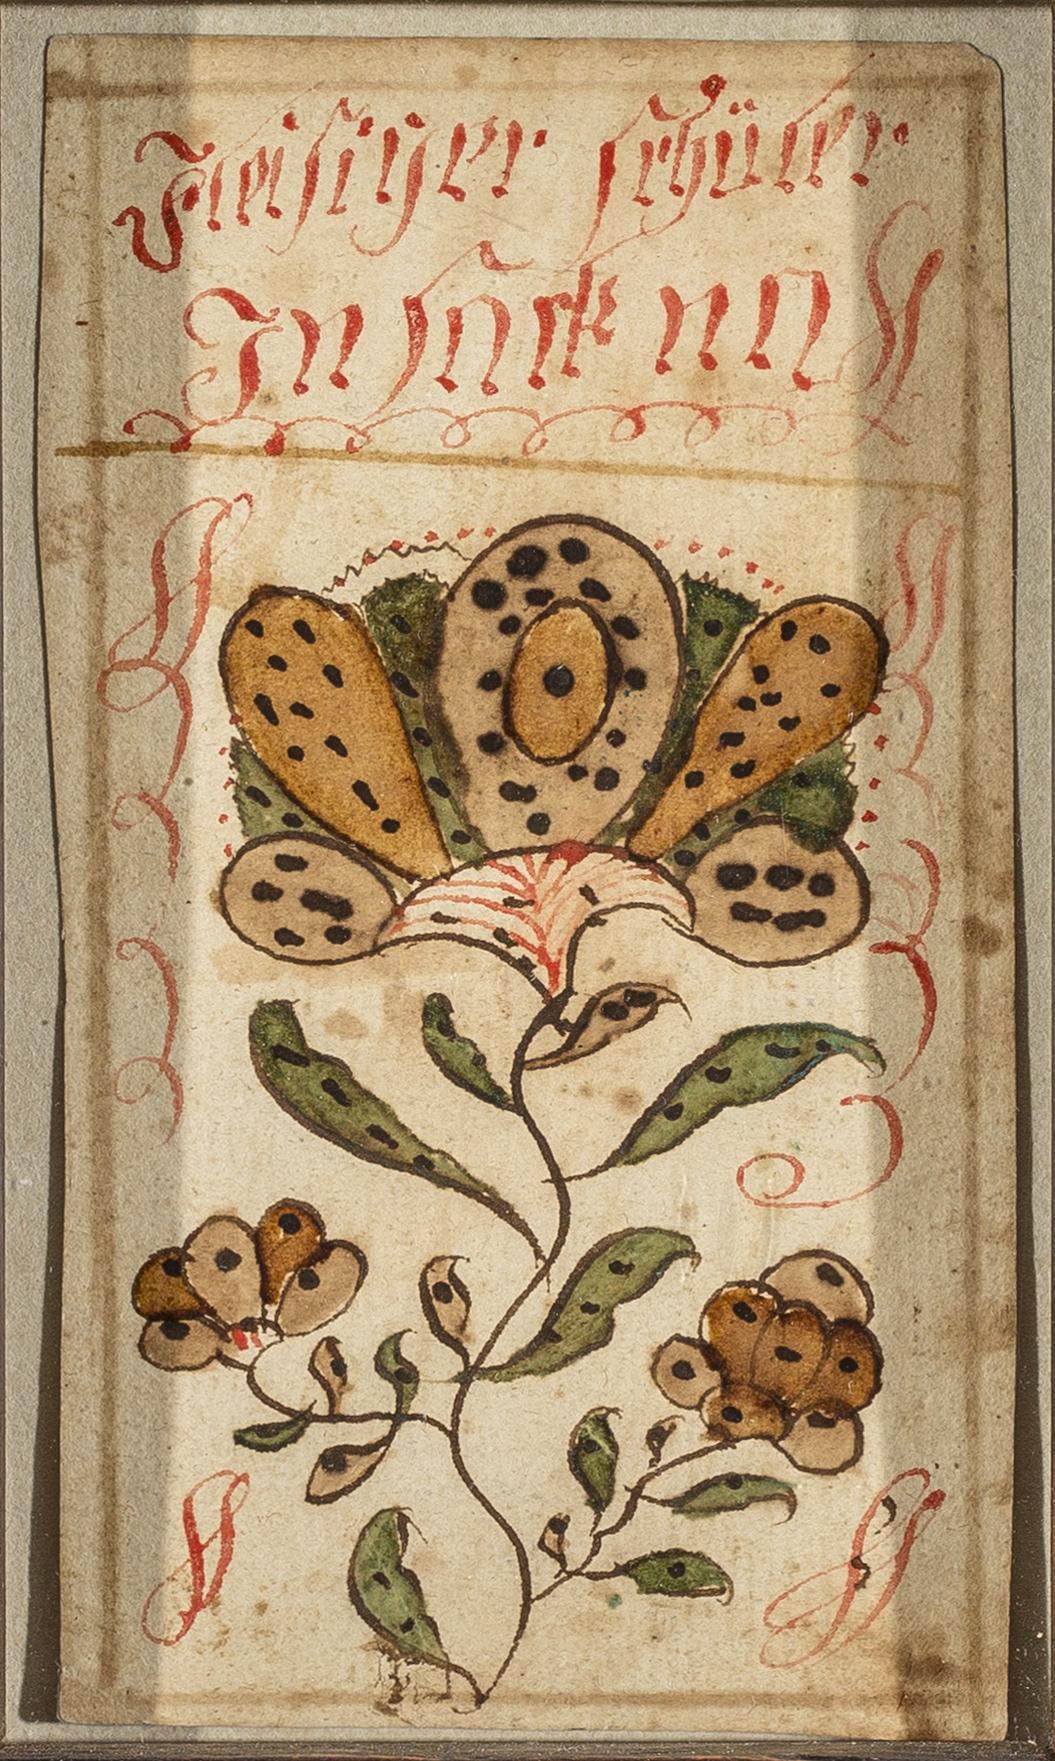 Fleisiger schüler
In sack